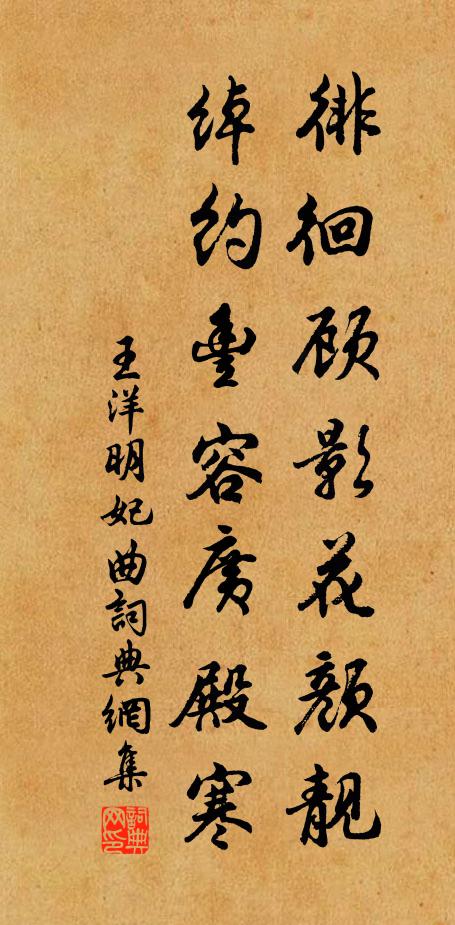 徘徊顾影花颜靓
绰约豊容广殿寒
王洋明妃曲詞典網集
詞典网印